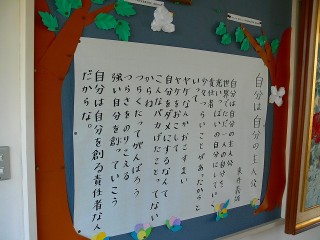 自分は自分の主人公
東井義雄
自分は自分の主人公
世界でただ一人の自分を
光いっぱいの自分にしていく
責任者
少々つらいことがあったからと
ヤケなんかおこすまい
ヤケをおこして
自分をダメにするなんて
こんなバカげたことってない
からね
つらくたってがんばろう
つらさをのりこえる
強い自分を創っていこう
自分は自分を創る責任者なん
だからな。